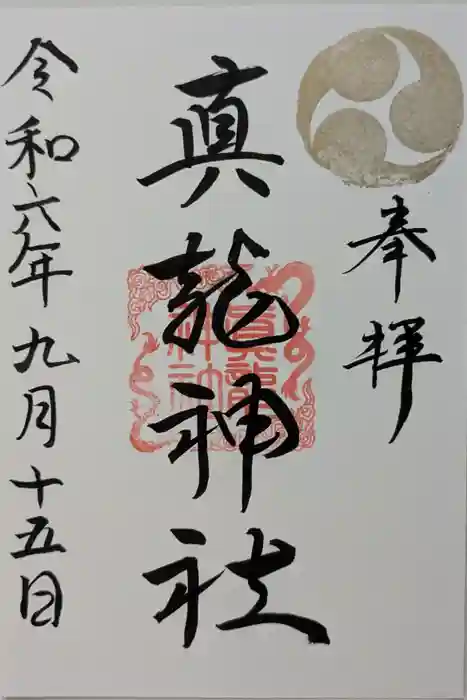 奉拝
真龍神社
眞龍神社
令和六年九月十五日